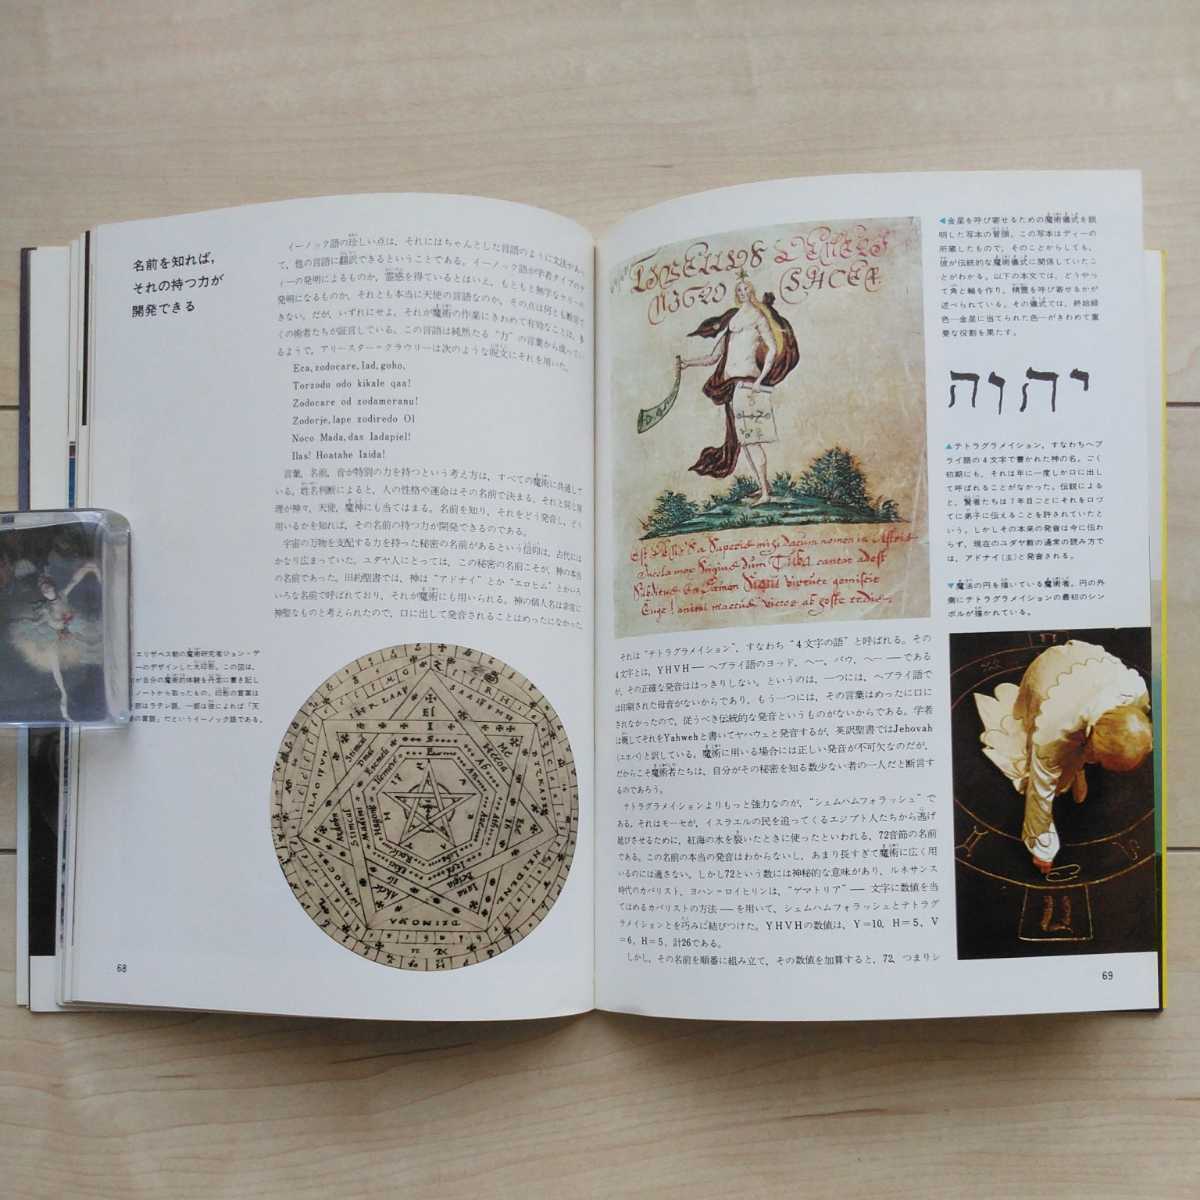 名前を知れば,
それの持つ力が
開発できる
イーノック語の珍しい点は、それにはちゃんとした言語のように文法があっ
て、他の言語に翻訳できるということである。イーノック語が学者タイプのデ
ィーの発明によるものか、霊感を得ているとはいえ、もともと無学なケリーの
発明になるものか、それとも本当に天使の言語なのか、その点は何とも断定で
きない。だが、いずれにせよ、それが魔術の作業にきわめて有効なことは、多
くの術者たちが証言している。この言語は純然たる “力” の言葉から成ってい
るようで、アリースター=クラウリーは次のような呪文にそれを用いた。
Eca, zodocare, Iad, goho,
Torzodo odo kikale qaa!
Zodocare od zodameranu!
Zodorje, lape zodiredo Ol
Noco Mada, das Iadapiel!
Ilas! Hoatahe Iaida!
言葉、名前、音が特別の力を持つという考え方は、すべての魔術に共通して
いる。姓名判断によると、人の性格や運命はその名前で決まる。それと同じ原
理が神々、天使、魔神にも当てはまる。名前を知り、それをどう発音し、どう
用いるかを知れば、その名前の持つ力が開発できるのである。
宇宙の万物を支配する力を持った秘密の名前があるという信仰は、古代には
かなり広まっていた。ユダヤ人にとっては、この秘密の名前こそが、神の本当
の名前であった。旧約聖書では、神は “アドナイ” とか “エロヒム” とかいろ
いろな名前で呼ばれており、それが魔術にも用いられる。神の個人名は非常に
神聖なものと考えられたので、口に出して発音されることはめったになかった
エリザベス朝の魔術研究者ジョン・デ
ィーのデザインした大印形。この図は、
が自分の魔術的体験を丹念に書き記し
ノートから取ったもの。印形の言葉は
部はラテン語、一部は彼によれば「天
の言語」だというイーノック語である。
68
◀金星を呼び寄せるための魔術儀式を説
明した写本の冒頭。この写本はディーの
所蔵したもので、そのことからしても、
彼が伝統的な魔術儀式に関係していたこ
とがわかる。以下の本文では、どうやっ
て角と輪を作り、精霊を呼び寄せるかが
述べられている。その儀式では、終始緑
色—金星に当てられた色—がきわめて重
要な役割を果たす。
יהוה
▲テトラグラメイション、すなわちヘブ
ライ語の4文字で書かれた神の名。ごく
初期にも、それは年に一度しか口に出し
て呼ばれることがなかった。伝説による
と、賢者たちは7年目ごとにそれを口づ
てに弟子に伝えることを許されていたと
いう。しかしその本来の発音は今に伝わ
らず、現在のユダヤ教の通常の読み方で
は、アドナイ(主)と発音される。
▼魔法の円を描いている魔術者。円の外
側にテトラグラメイションの最初のシン
ボルが描かれている。
それは “テトラグラメイション”、すなわち “4文字の語” と呼ばれる。その
4文字とは、YHVH — ヘブライ語のヨッド、ヘー、バウ、ヘー — である
が、その正確な発音ははっきりしない。というのは、一つには、ヘブライ語で
は印刷された母音がないからであり、もう一つには、その言葉はめったに口に
されなかったので、従うべき伝統的な発音というものがないからである。学者
は概してそれをYahwehと書いてヤハウェと発音するが、英訳聖書ではJehovah
(エホバ)と訳している。魔術に用いる場合には正しい発音が不可欠なのだが、
だからこそ魔術者たちは、自分がその秘密を知る数少ない者の一人だと断言す
るのであろう。
テトラグラメイションよりもっと強力なのが、“シェムハムフォラッシュ” で
ある。それはモーセが、イスラエルの民を追ってくるエジプト人たちから逃げ
延びさせるために、紅海の水を裂いたときに使ったといわれる、72音節の名前
である。この名前の本当の発音はわからないし、あまり長すぎて魔術に広く用
いるのには適さない。しかし72という数には神秘的な意味があり、ルネサンス
時代のカバリスト、ヨハン=ロイヒリンは、“ゲマトリア” — 文字に数値を当
てはめるカバリストの方法 — を用いて、シェムハムフォラッシュとテトラグ
ラメイションとを巧みに結びつけた。YHVHの数値は、Y=10、H=5、V
=6、H=5、計26である。
しかし、その名前を順番に組み立て、その数値を加算すると、72、つまりシ
69